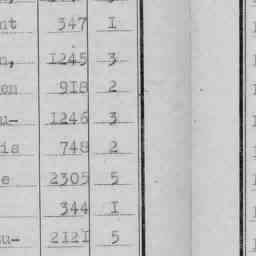 nt 347 I
n, 1245 3
en 918 2
u- 1246 3
is 748 2
e 2305 5
344 I
u- 2121 5